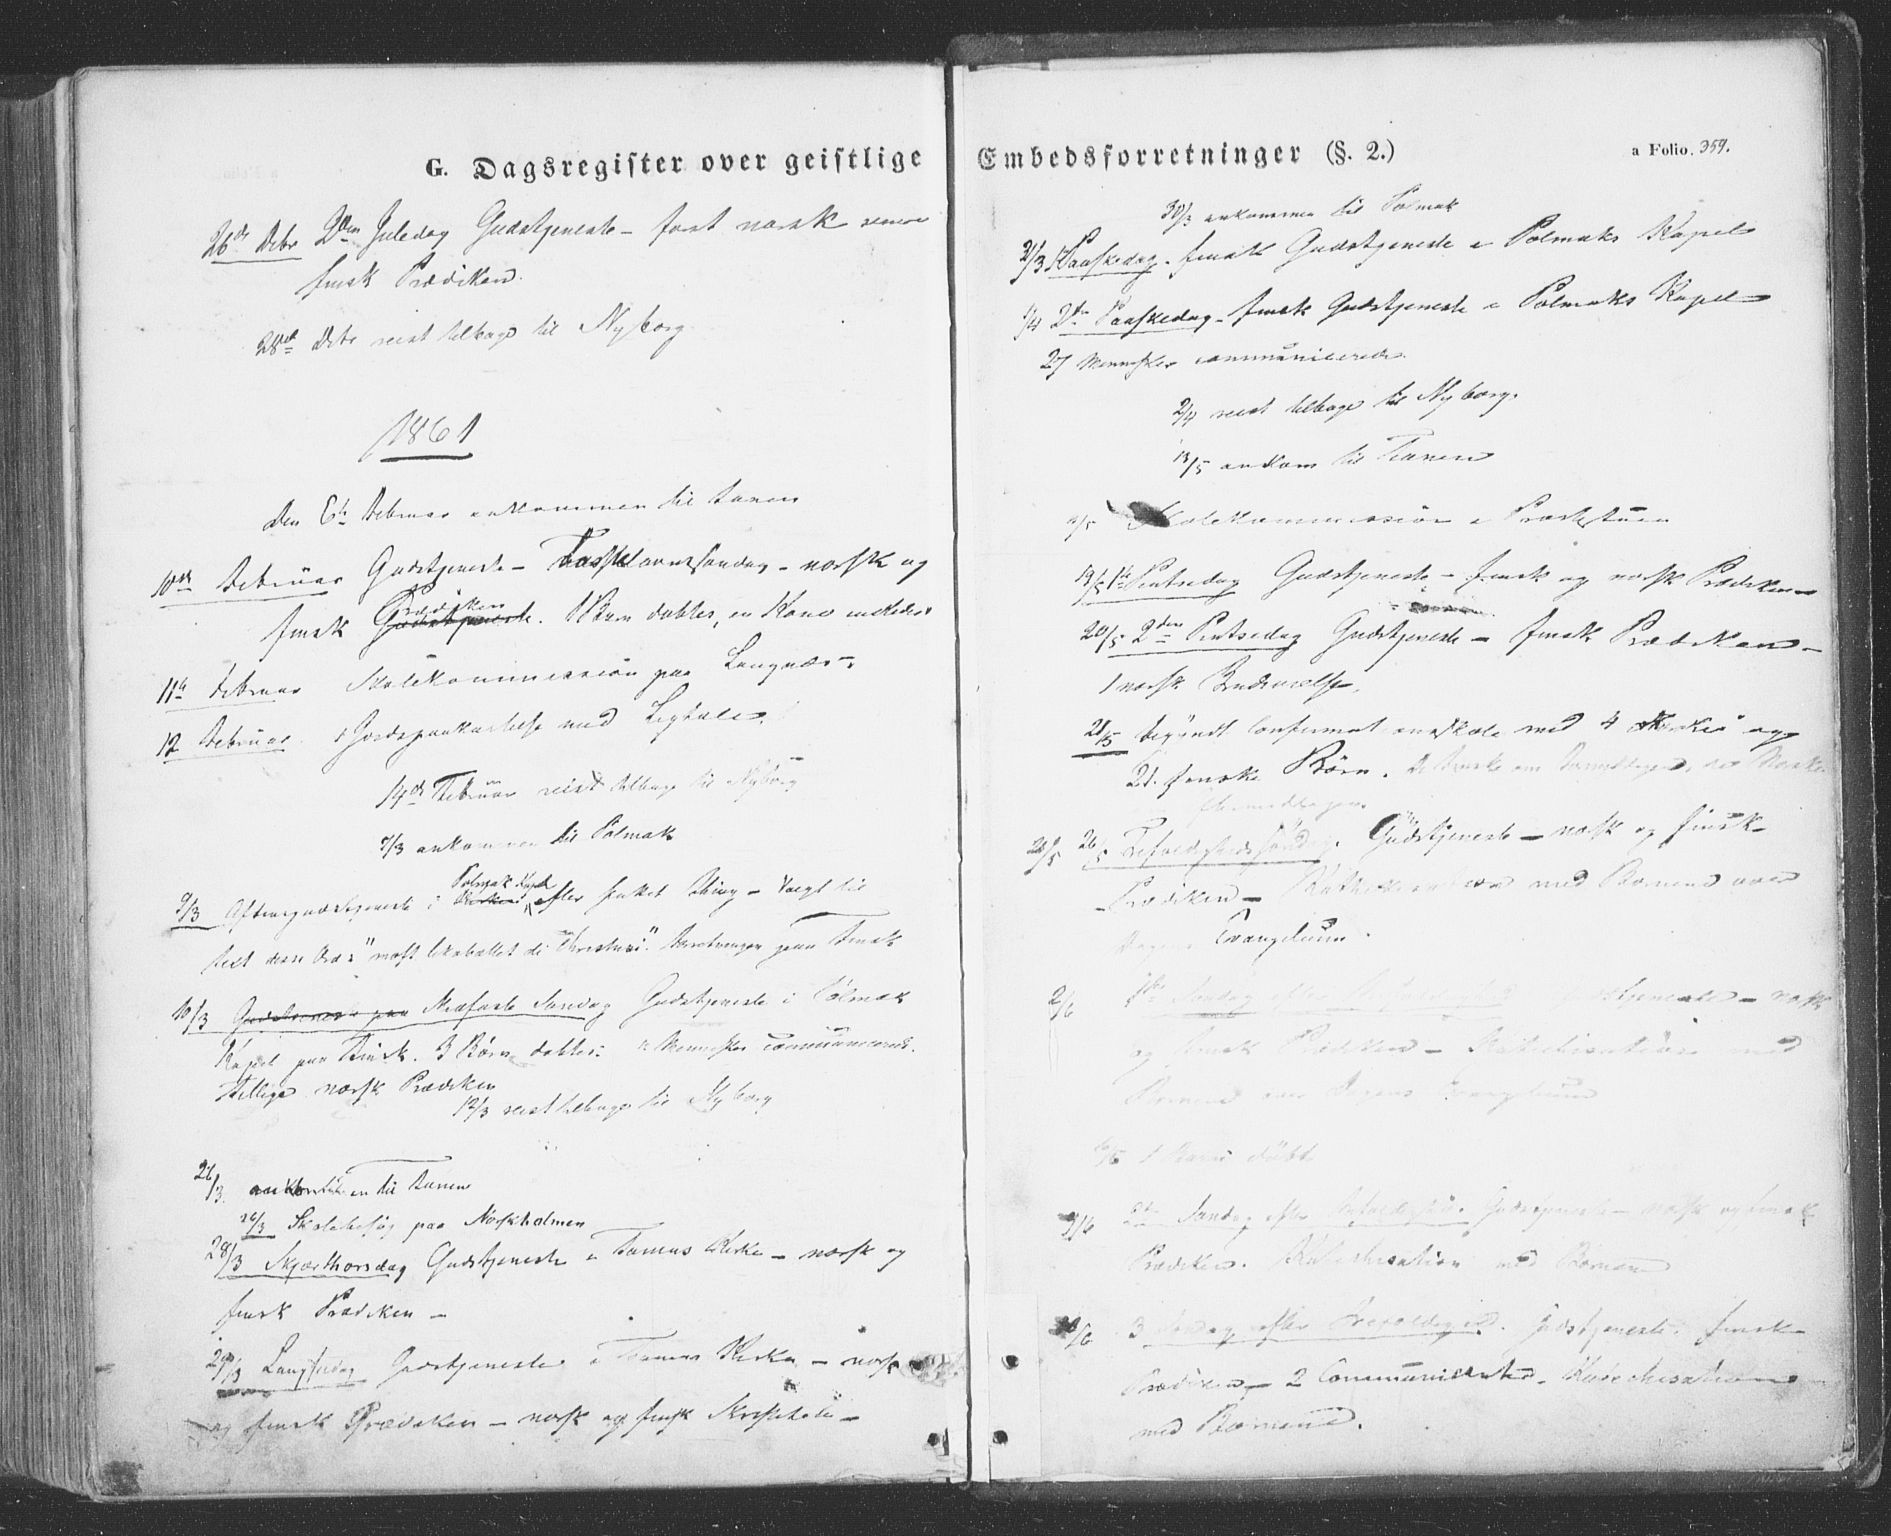 G. Dagsregister over geistlige
26de Debr 2den Juledag Gudstjeneste – først norsk senere
finsk Prædiken.
28de Debr reist tilbage til Nyborg.
1861
Den 6te Februar ankommen til Tanen
10de Februar Gudstjeneste – Fastelavnssøndag – norsk og
Prædiken
finsk Gudstjeneste. 1 Barn døbtes, en Kone indlededes
11te Februar Skolekommission paa Langnæs –
12 Februar Jordspaakastelse med Ligtale.
14de Februar reist tilbage til Nyborg
7/3 ankommen til Polmak
Polmak Kapel
9/3 Aftengudstjeneste i Kirken efter Thing – Valgt til
text disse Ord: " Christum". Forretningen paa Finsk
10/3 Gudstjeneste paa Midfaste Søndag Gudstjeneste i Polmak
Kapel paa Finsk. 3 Børn døbtes. Mennesker communicerede.
Tillige norsk Prædiken
12/3 reist tilbage til Nyborg
26/3. ankommen til Tanen
26/3 Skolebesøg paa Norskholmen
28/3 Skjærthorsdag Gudstjeneste i Tanens Kirke – norsk og
finsk Prædiken –
29/3 Langfredag Gudstjeneste i Tanens Kirke – norsk
og finsk Prædiken – norsk og finsk
Embedsforretninger (§. 2.)
a Folio. 359.
30/3 ankommen til Polmak
31/3 1 Paaskedag. finsk Gudstjeneste i Polmaks Kapel
1/4 2den Paaskedag – finsk Gudstjeneste i Polmaks Kapel –
27 Mennesker communicerede.
2/4 reist tilbage til Nyborg.
13/5 ankom til Tanen
/5 Skolekommission i Præstestuen
19/5 1ste Pintsedag Gudstjeneste – finsk og norsk Prædiken
20/5 2den Pintsedag Gudstjeneste – finsk Prædiken –
1 norsk
21/5 begyndt Confirmationsskole med 4 norske og
21 finske Børn. De finske om Formiddagen, de Norske
Eftermiddagen.
26/5 26/5 Trefoldighedssøndag. Gudstjeneste – norsk og finsk
Prædiken – Katechisation med Børnene over
Dagens Evangelium.
2/6 1ste Søndag efter Gudstjeneste – norsk
og finsk Prædiken – Katechisation med
Børnene over Dagens Evangelium
/6 1 Barn døbt
9/6 2den Søndag efter Trefoldighed. Gudstjeneste – norsk og finsk
Prædiken. Katechisation med Børnene
/6 3 Søndag efter Trefoldighed. Gudstjeneste. finsk
Prædiken – 2 Communicanter. Katechisation
med Børnene.